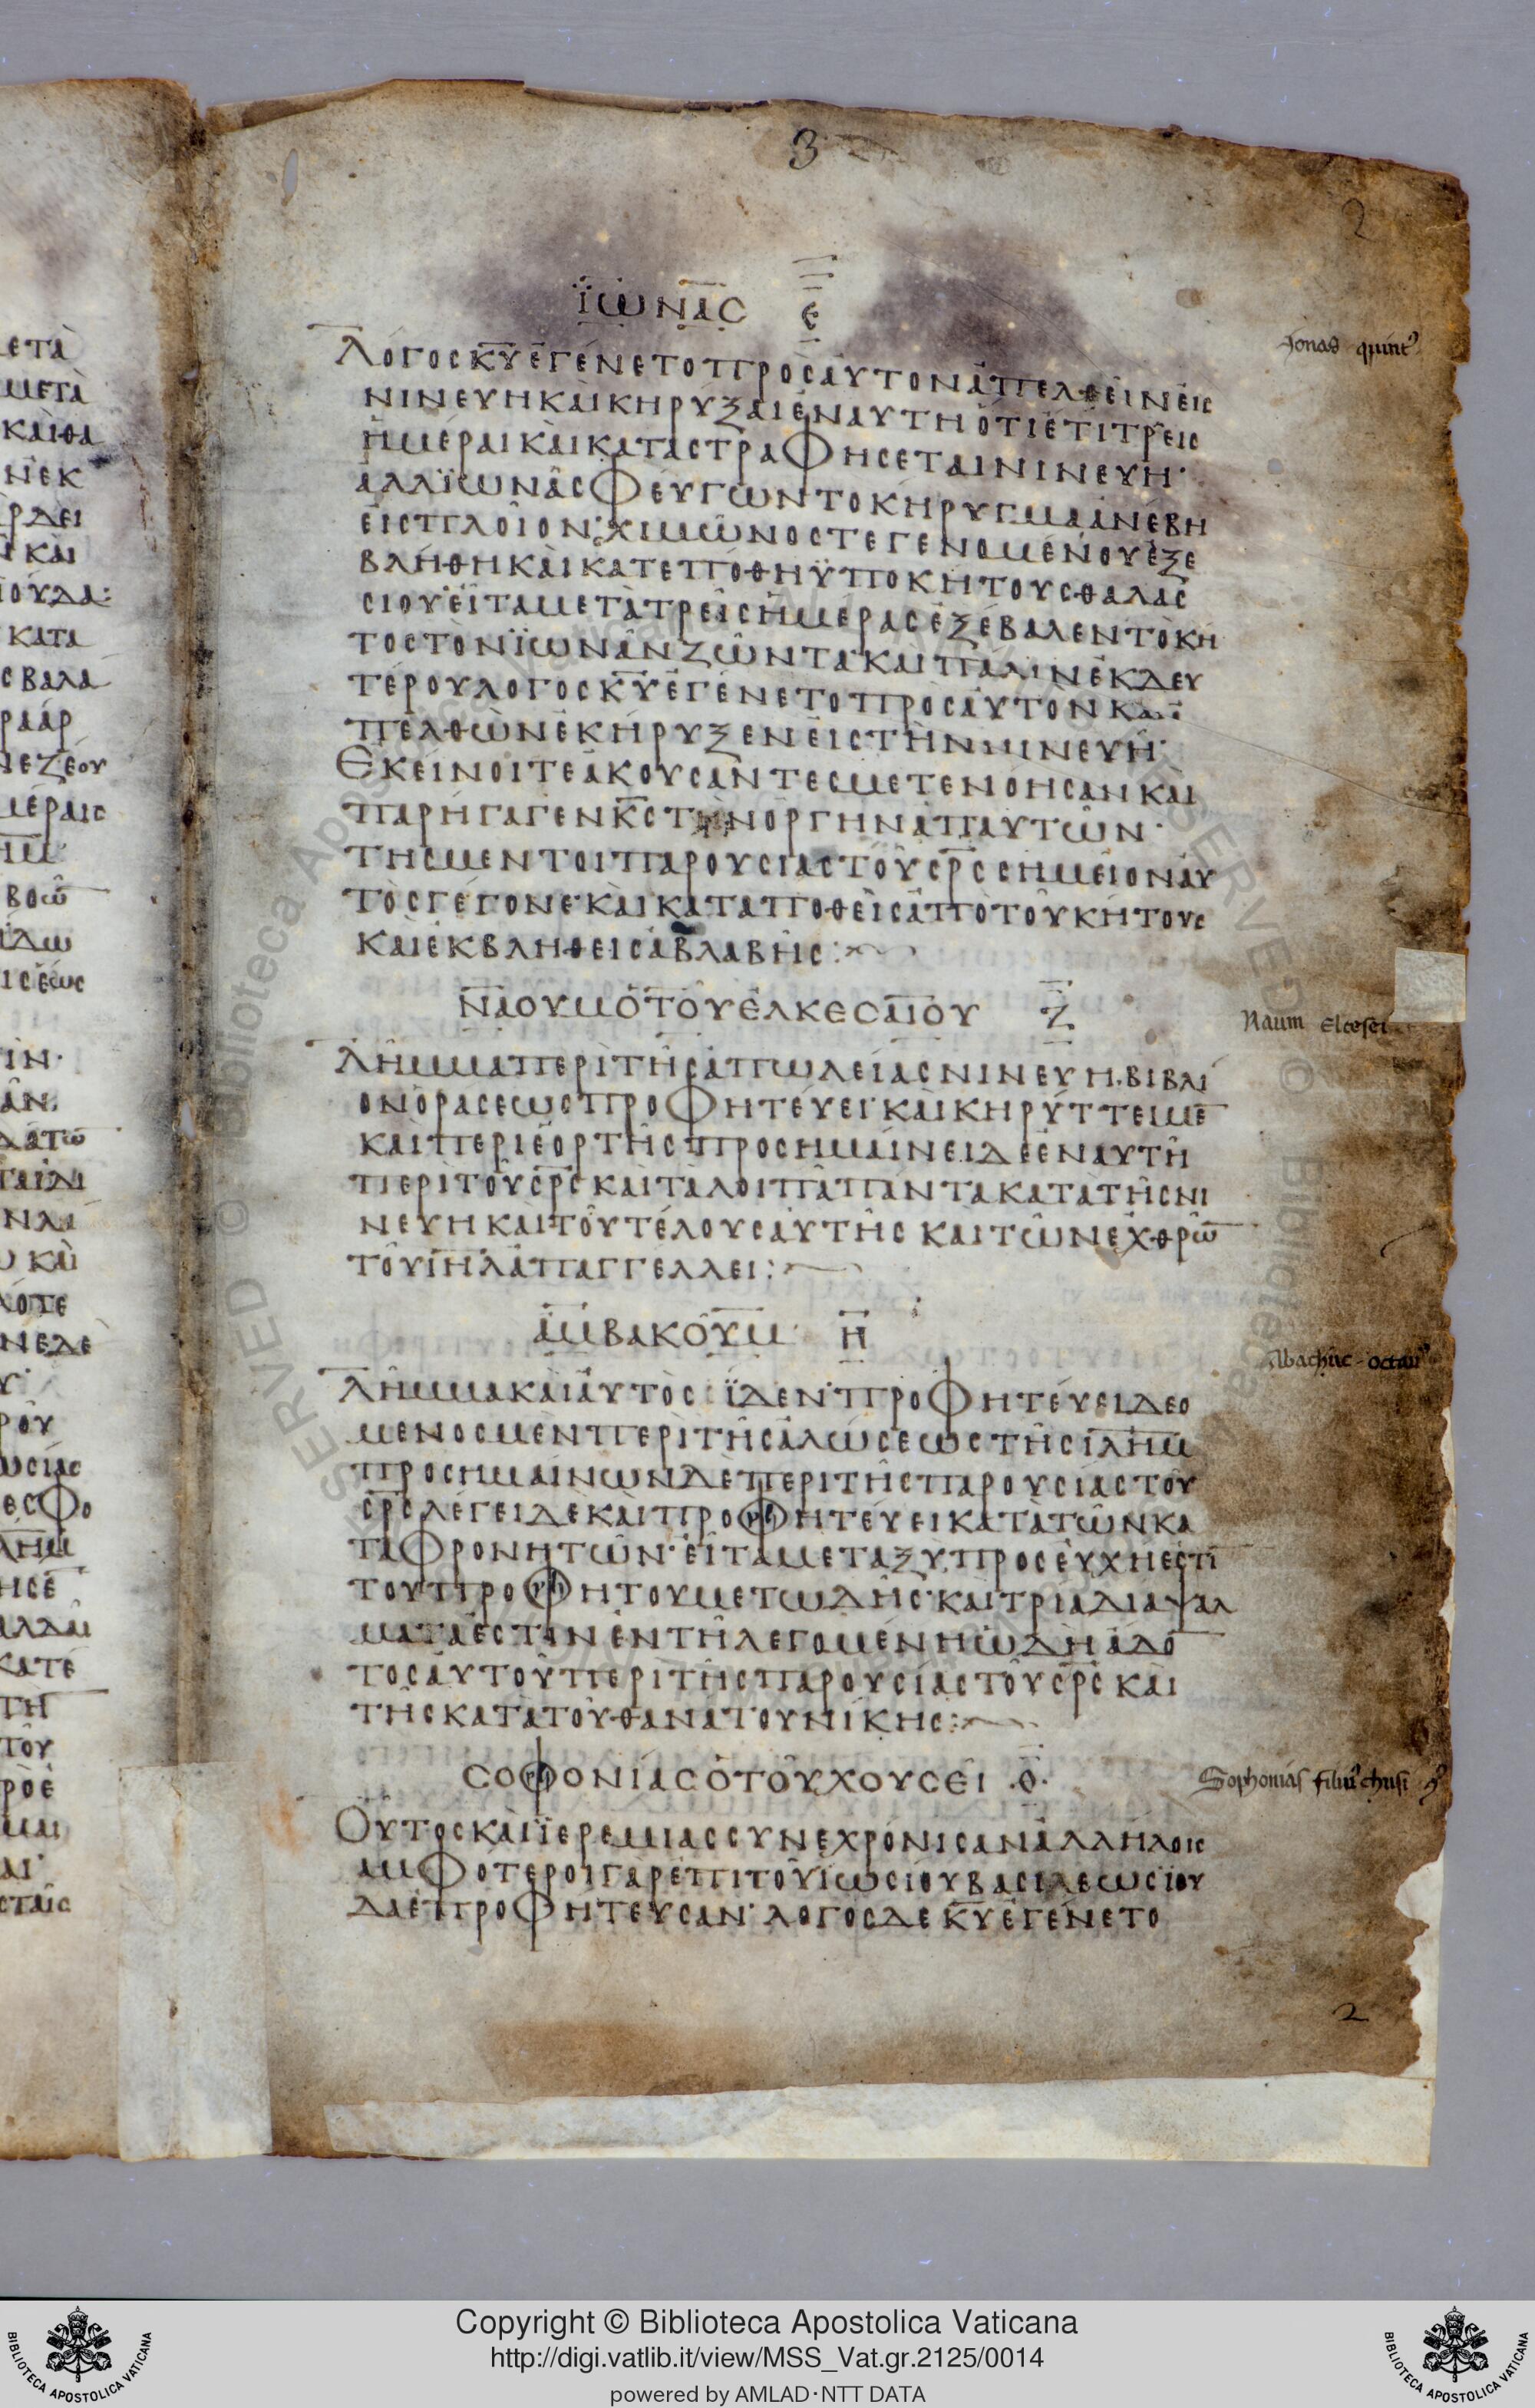 3
2
ΪΩΝΑС Ε
Jonas quint9
ΛΟΓΟСΚΥΕΓΕΝΕΤΟΠΡΟСΑΥΤΟΝΑΠΕΛΘΕΙΝΕΙС
ΝΙΝΕΥΗΚΑΙΚΗΡΥΞΑΙΕΝΑΥΤΗΟΤΙΕΤΙΤΡΕΙС
ΗΜΕΡΑΙΚΑΙΚΑΤΑСΤΡΑΦΗСΕΤΑΙΝΙΝΕΥΗ·
ΑΛΛΪΩΝΑСΦΕΥΓΩΝΤΟΚΗΡΥΓΜΑΑΝΕΒΗ
ΕΙСΠΛΟΙΟΝ·ΧΙΜΩΝΟСΤΕΓΕΝΟΜΕΝΟΥΕΞΕ
ΒΛΗΘΗΚΑΙΚΑΤΕΠΟΘΗΫΠΟΚΗΤΟΥСΘΑΛΑС
СΙΟΥ·ΕΙΤΑΜΕΤΑΤΡΕΙСΗΜΕΡΑСΕΞΕΒΑΛΕΝΤΟΚΗ
ΤΟСΤΟΝΪΩΝΑΝΖΩΝΤΑ·ΚΑΙΠΑΛΙΝΕΚΔΕΥ
ΤΕΡΟΥΛΟΓΟСΚΥΕΓΕΝΕΤΟΠΡΟСΑΥΤΟΝΚΑΙΑ
ΠΕΛΘΩΝΕΚΗΡΥΞΕΝΕΙСΤΗΝΝΙΝΕΥΗ·
ΕΚΕΙΝΟΙΤΕΑΚΟΥСΑΝΤΕСΜΕΤΕΝΟΗСΑΝΚΑΙ
ΠΑΡΗΓΑΓΕΝΚСΤΗΝΟΡΓΗΝΑΠΑΥΤΩΝ·
ΤΗСΜΕΝΤΟΙΠΑΡΟΥСΙΑСΤΟΥСΡССΗΜΕΙΟΝΑΥ
ΤΟСΓΕΓΟΝΕ·ΚΑΙΚΑΤΑΠΟΘΕΙСΑΠΟΤΟΥΚΗΤΟΥС
ΚΑΙΕΚΒΛΗΘΕΙСΑΒΛΑΒΗС:
ΝΑΟΥΜΟΤΟΥΕΛΚΕСΑΙΟΥ Ζ
Naum Elcesei
ΛΗΜΜΑΠΕΡΙΤΗСΑΠΩΛΕΙΑСΝΙΝΕΥΗ·ΒΙΒΛΙ
ΟΝΟΡΑСΕΩСΠΡΟΦΗΤΕΥΕΙ·ΚΑΙΚΗΡΥΤΤΕΙΜΕ
ΚΑΙΠΕΡΙΕΟΡΤΗСΠΡΟСΗΜΑΙΝΕΙΔΕΕΝΑΥΤΗ
ΠΕΡΙΤΟΥСΡСΚΑΙΤΑΛΟΙΠΑΠΑΝΤΑΚΑΤΑΤΗСΝΙ
ΝΕΥΗΚΑΙΤΟΥΤΕΛΟΥСΑΥΤΗСΚΑΙΤΩΝΕΧΘΡΩ
ΤΟΥΙΗΛΑΠΑΓΓΕΛΛΕΙ:
ΑΜΒΑΚΟΥΜ· Η
Abachuc octau9
ΛΗΜΜΑΚΑΙΑΥΤΟСΪΔΕΝ·ΠΡΟΦΗΤΕΥΕΙΔΕΟ
ΜΕΝΟСΜΕΝΠΕΡΙΤΗСΑΛΩСΕΩСΤΗСΙΛΗΜ
ΠΡΟСΗΜΑΙΝΩΝΔΕΠΕΡΙΤΗСΠΑΡΟΥСΙΑСΤΟΥ
СΡСΛΕΓΕΙΔΕΚΑΙΠΡΟΦΗΤΕΥΕΙΚΑΤΑΤΩΝΚΑ
ΤΑΦΡΟΝΗΤΩΝ·ΕΙΤΑΜΕΤΑΞΥΠΡΟСΕΥΧΗΕСΤΙ
ΤΟΥΠΡΟΦΗΤΟΥΜΕΤΩΔΗС·ΚΑΙΤΡΙΑΔΙΑΨΑΛ
ΜΑΤΑΕСΤΙΝΕΝΤΗΛΕΓΟΜΕΝΗΩΔΗΑΔΟ
ΤΟСΑΥΤΟΥΠΕΡΙΤΗСΠΑΡΟΥСΙΑСΤΟΥСΡСΚΑΙ
ΤΗСΚΑΤΑΤΟΥΘΑΝΑΤΟΥΝΙΚΗС:
СΟΦΟΝΙΑСΟΤΟΥΧΟΥСΕΙ ·Θ·
Sophonias filiu9 chusi 9
ΟΥΤΟСΚΑΙΪΕΡΕΜΙΑССΥΝΕΧΡΟΝΙСΑΝΑΛΛΗΛΟΙС
ΑΜΦΟΤΕΡΟΙΓΑΡΕΠΙΤΟΥΪΩСΙΟΥΒΑСΙΛΕΩСΪΟΥ
ΔΑΕΠΡΟΦΗΤΕΥСΑΝ·ΛΟΓΟСΔΕΚΥΕΓΕΝΕΤΟ
2
Copyright © Biblioteca Apostolica Vaticana
http://digi.vatlib.it/view/MSS_Vat.gr.2125/0014
powered by AMLAD·NTT DATA